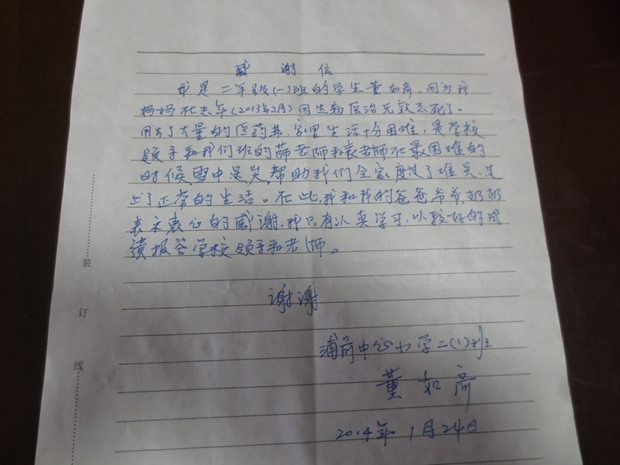 感谢信
我是二年级(一)班的学生董如齐,因为我
妈妈在去年(2013年2月)因生病医治无效去死了。
用去了大量的医药费,家里生活十分困难,是学校
领导和我们班的薛老师和袁老师在最困难的
时候,雪中送炭帮助我们全家度过了难关,走
上了正常的生活。在此,我和我的爸爸爷爷奶奶
表示衷心的感谢,我只有认真学习,以较好的成
绩报答学校领导和老师。
谢谢
浦前中心小学二(1)班
董如齐
2014年1月24日
装
订
线